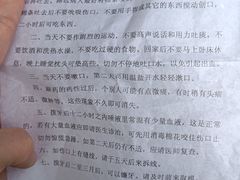 条吐去后不要吮吸伤口，用手或其它的东西搅动创口，
二小时后可吃东西。
二、当天不要作剧烈的运动，不要高声说话和用力吐痰，不
要饮酒和洗热水澡，不要吃过硬的食物。回家后不要马上卧床休
息，晚上睡觉枕头可垫高些，切勿不停地吐口水，以免引起出血。
三、当天不要漱口，第二天可用温盐开水轻轻漱口。
四、麻药的药性过后，个别人可能有点微痛，有时稍有头痛
不适、微肿等，这些现象不久即可消失。
五、拔牙后十二小时之内唾液里常混有少量血液，这是正常
的，若有大量血液应即请医生诊治，可先用消毒棉花咬住伤口止
切勿惊慌急躁，如第二天仍不止，应请医师复查。
六、如伤口上有缝线，请于五天后来拆线。
七、拔牙后二至三月后，可以镶牙。请及时前来